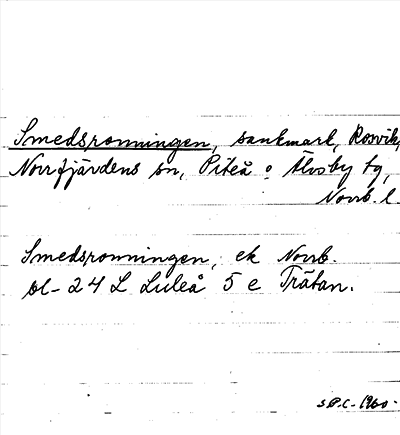 Smedsronningen, sankmark, Rosvik,
Norrfjärdens sn, Piteå o Älvsby tg,
Norrb. l.
Smedsronningen, ek Norrb.
bl- 24 L Luleå 5 e Träfan.
SPC-1960-